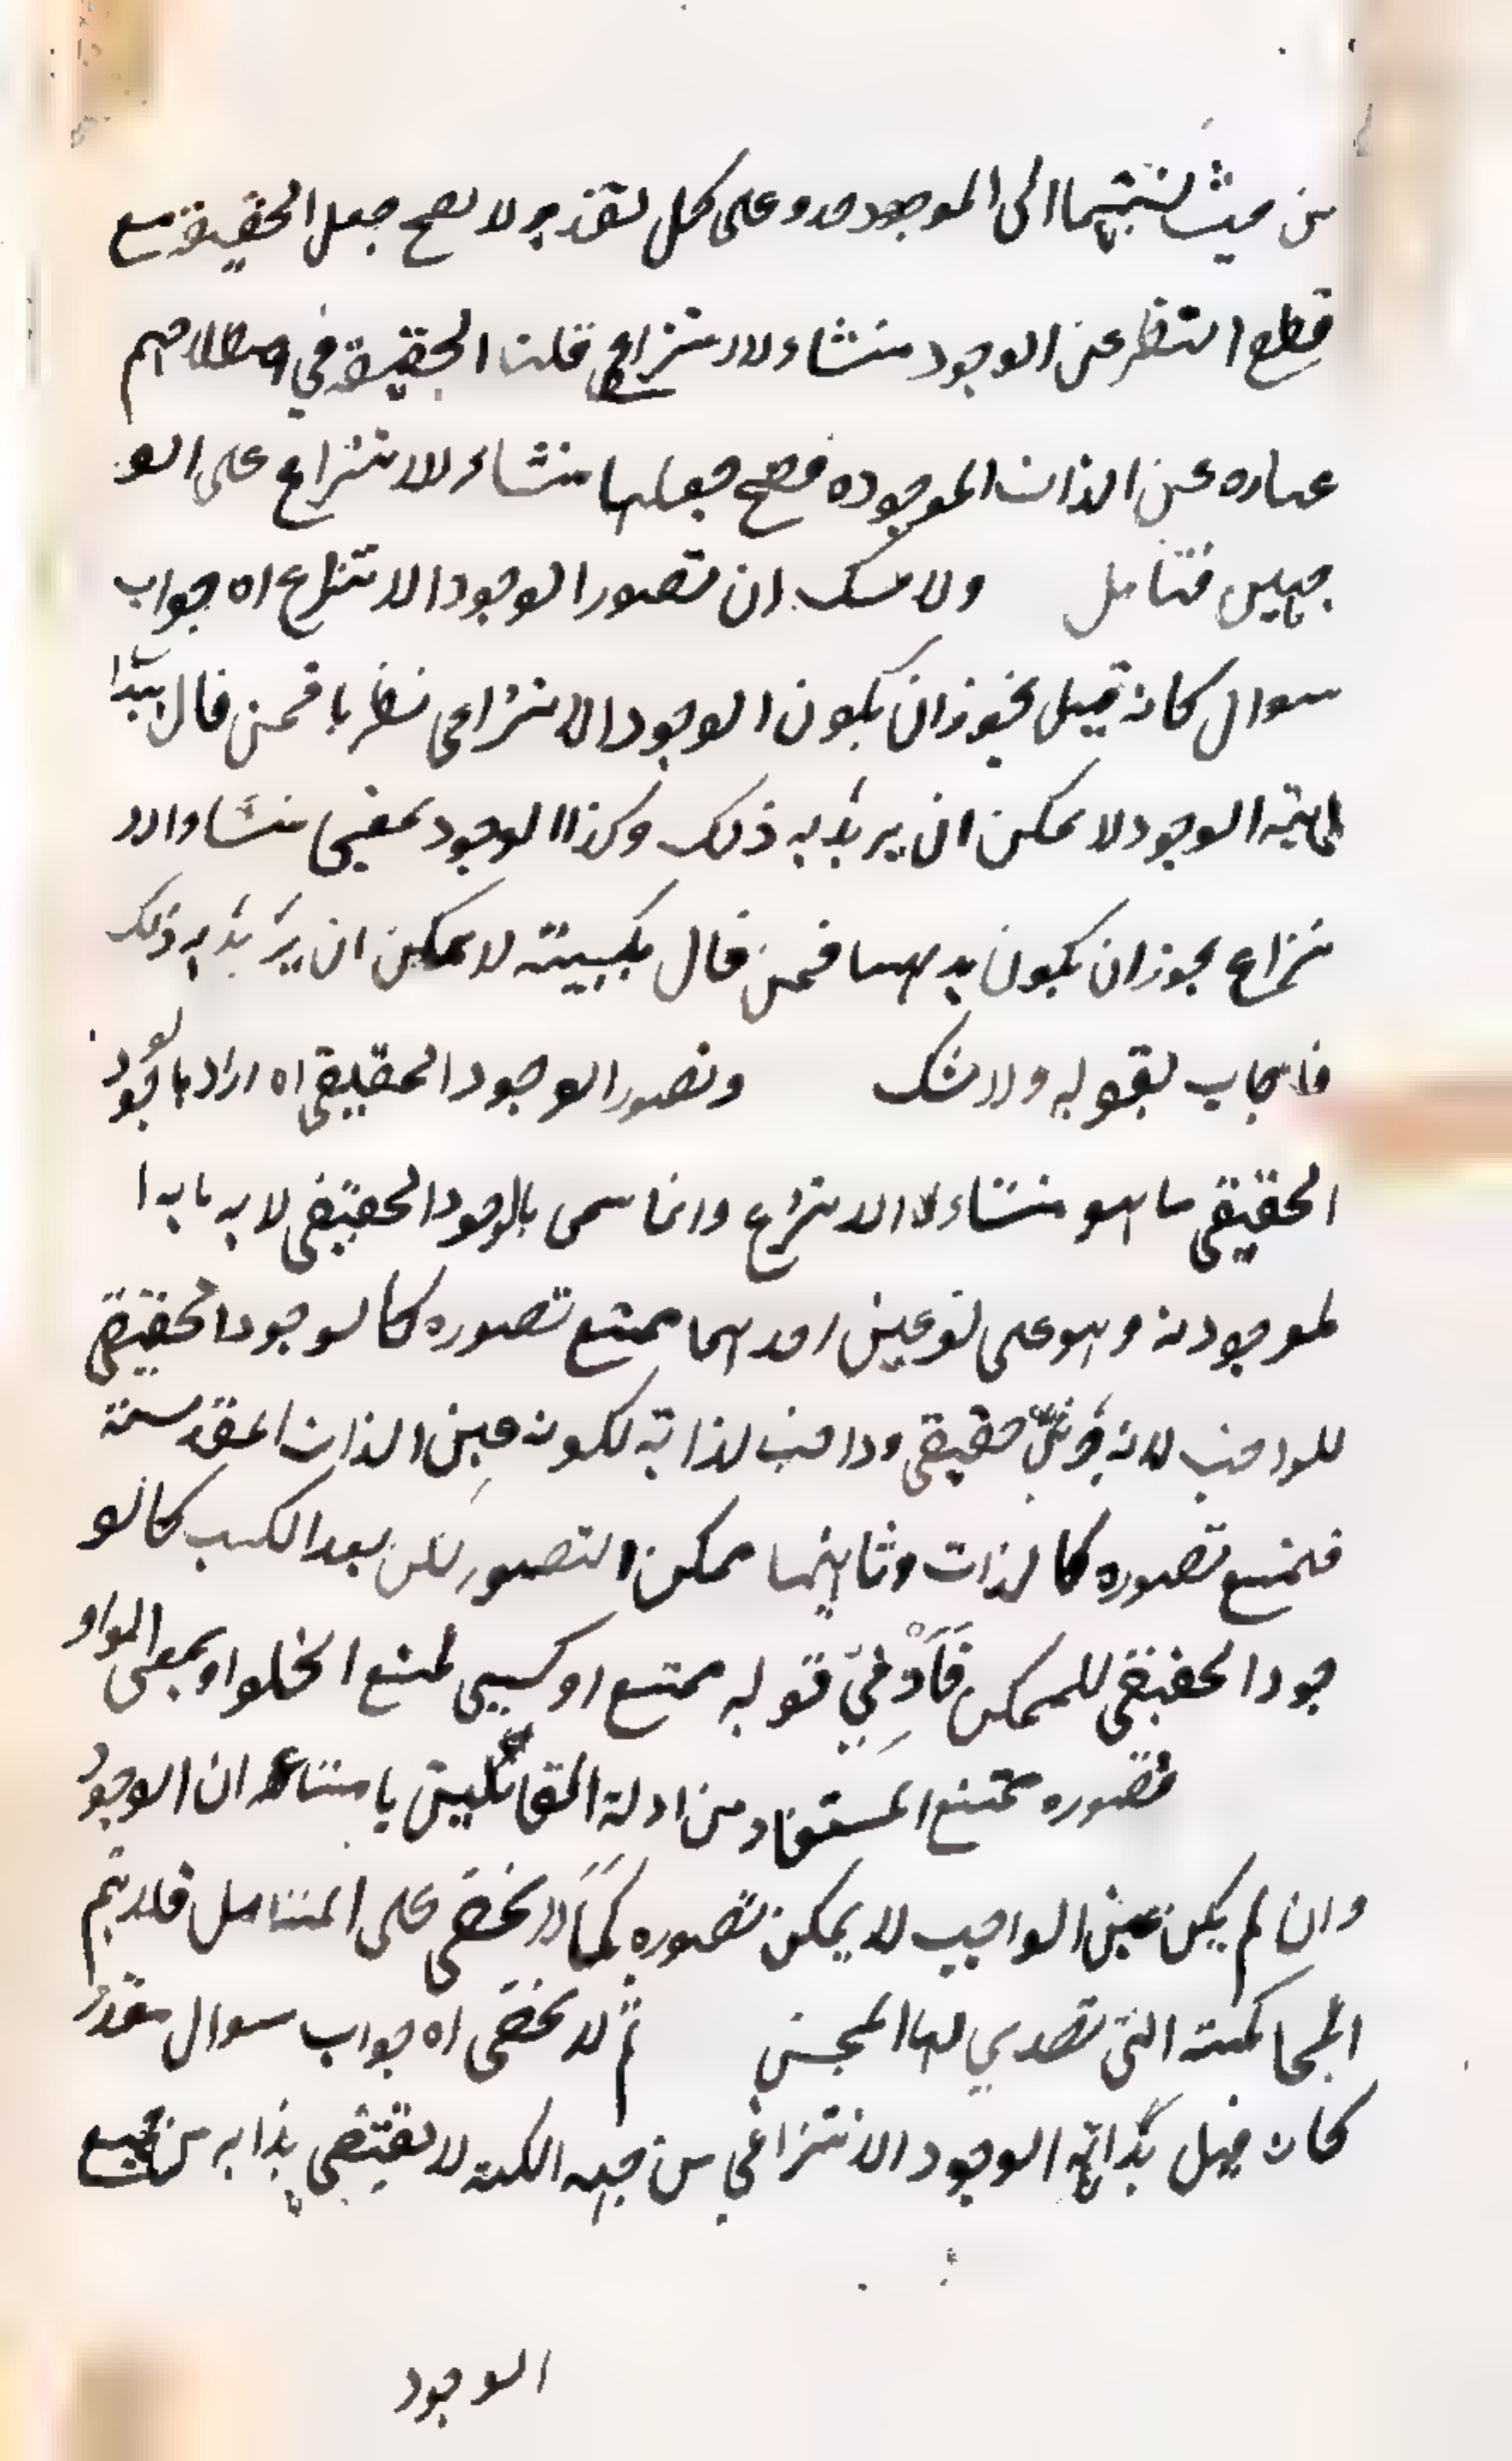 من حيث نسبتهما الى الموجود وعلى كل تقدير لا يصح جعل الحقيقة مع
قطع النظر عن الوجود منشاء للانتزاع قلنا الحقيقة في اصطلاحهم
عباره عن الذات الموجوده فصح جعلها منشاء للانتزاع على الو
جهين فتامل ولا شك ان تصور الوجود الانتزاع اه جواب
سوال كانه قيل يجوز ان يكون الوجود الانتزاعى نظريا فمن قال ببدا
هايته الوجود لا يمكن ان يريد به ذلك وكذا الوجود بمعنى منشاء الا
نتزاع يجوز ان يكون بديهيا فمن قال بكسبيته لا يمكن ان يريد به ذلك
فاجاب بقوله ولا شك وتصور الوجود الحقيقى اه اراد بالوجود
الحقيقي ما هو منشاء الانتزاع وانما سمى بالوجود الحقيقى لا به ما به ا
لموجودية وهو على نوعين احدهما يمتنع تصوره كالوجود الحقيقى
للواجب لانه جزئى حقيقى وواجب لذاته لكونه عين الذات المقدسة
فيمتنع تصوره كالذات وثانيهما ممكن التصور لكن بعد الكسب كالو
جود الحقيقى للممكن فَاَوْ فِيْ قوله ممتنع او كسبى لمنع الخلو او بمعنى الواو
تصوره ممتنع المستفاد من ادلة القائلين بامتناعه ان الوجود
وان لم يكن عين الواجب لا يمكن تصوره كَمَا لا يخفى على المتامل فلا يتم
المحاكمته التى تصدي لها المحشى ثم لا يخفى اه جواب سوال مقدر
كانه قيل بداهته الوجود الانتزاعي من جهه الكنه لا يقتضى بذابه من جميع
الوجود